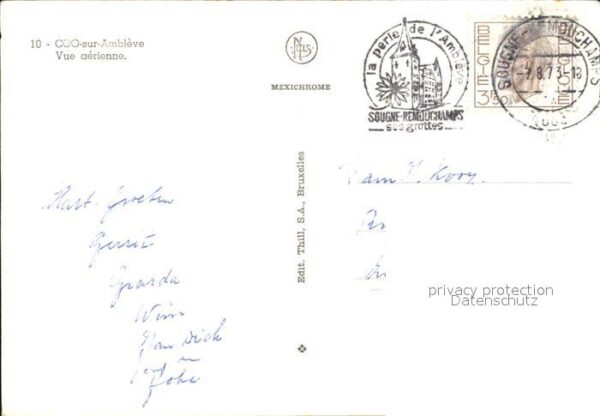 10 - COO-sur-Amblève
Vue aérienne.
NELS
MEXICHROME
la perle de l'Amblève
SOUGNE-REMOUCHAMPS
ses grottes
BELGIE
3,50
BELGIQUE
SOUGNE-REMOUCHAMPS
-7.8.73-18
Edit. Thill, S.A., Bruxelles
Fam. Kooy.
Hart. Groeten
Gerrit
Gerarda
Wim
privacy protection
Datenschutz